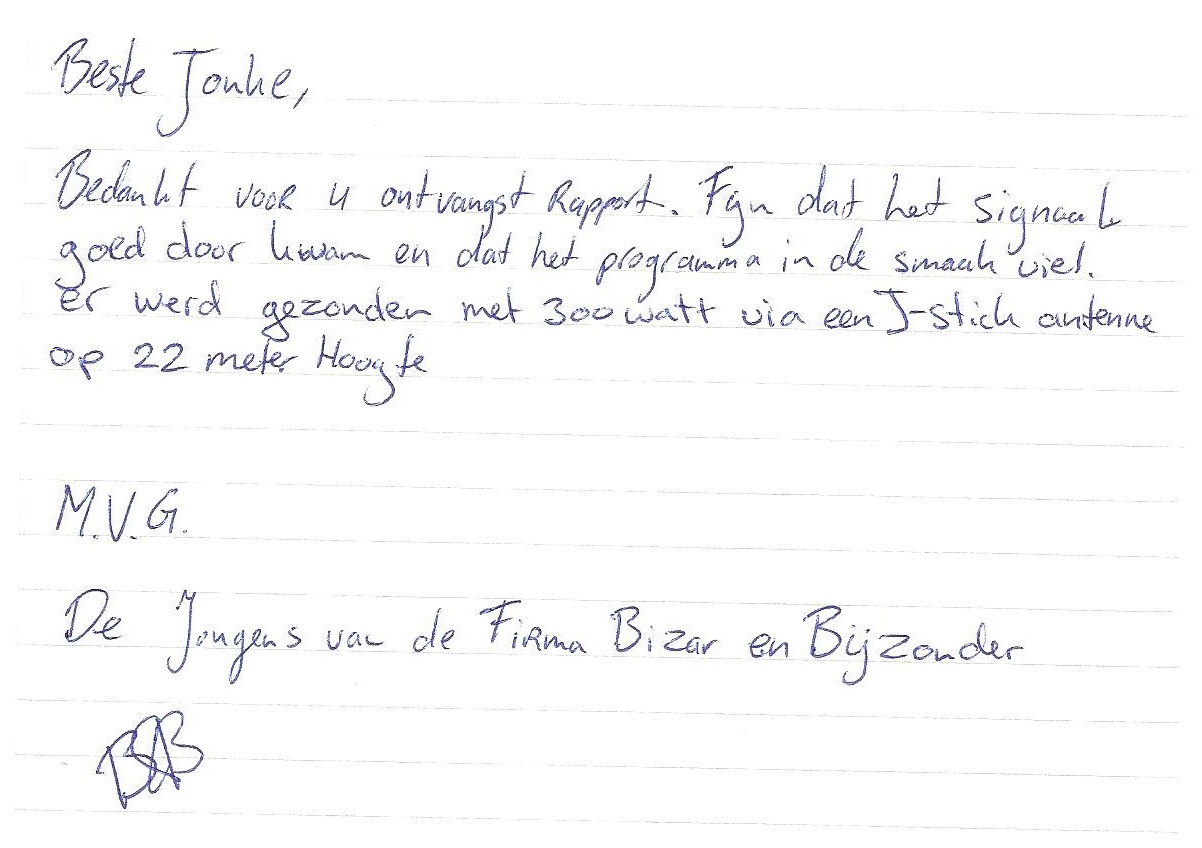 Beste Jouke,
Bedankt voor u ontvangst Rapport. Fyn dat het signaal
goed door kwam en dat het programma in de smaak viel.
er werd gezonden met 300 watt via een J-stick antenne
op 22 meter Hoogte
M.V.G.
De Jongens van de Firma Bizar en Bijzonder
B&B